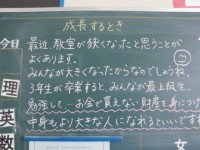 成長するとき
今日
最近、教室が狭くなったと思うことが
よくあります。
みんなが大きくなったからなのでしょうね。
3年生が卒業すると、みんなが最上級生。
勉強して…お金で買えない財産を身につけ
中身もより大きな人になれるといいですね
理
英
数